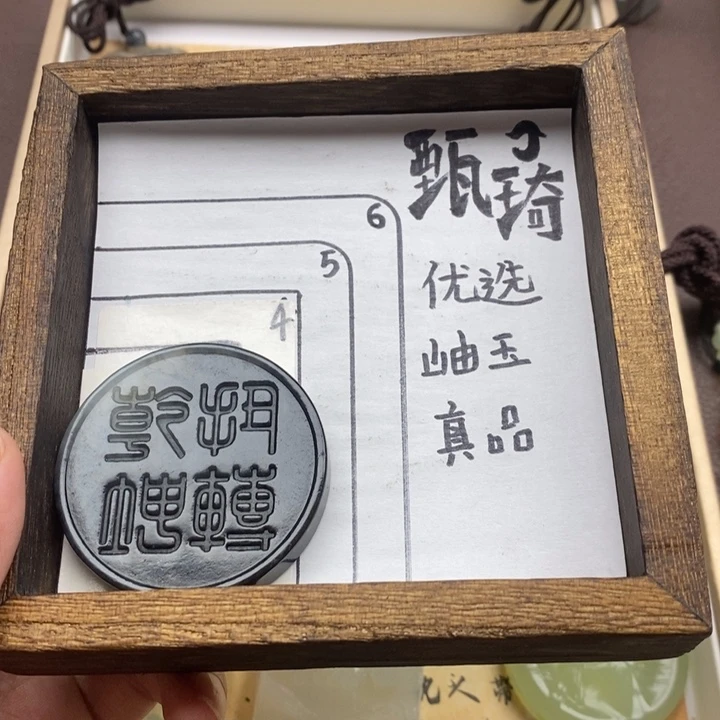 甄琦
优选
岫玉
真品
6
5
4
扭轉
乾坤